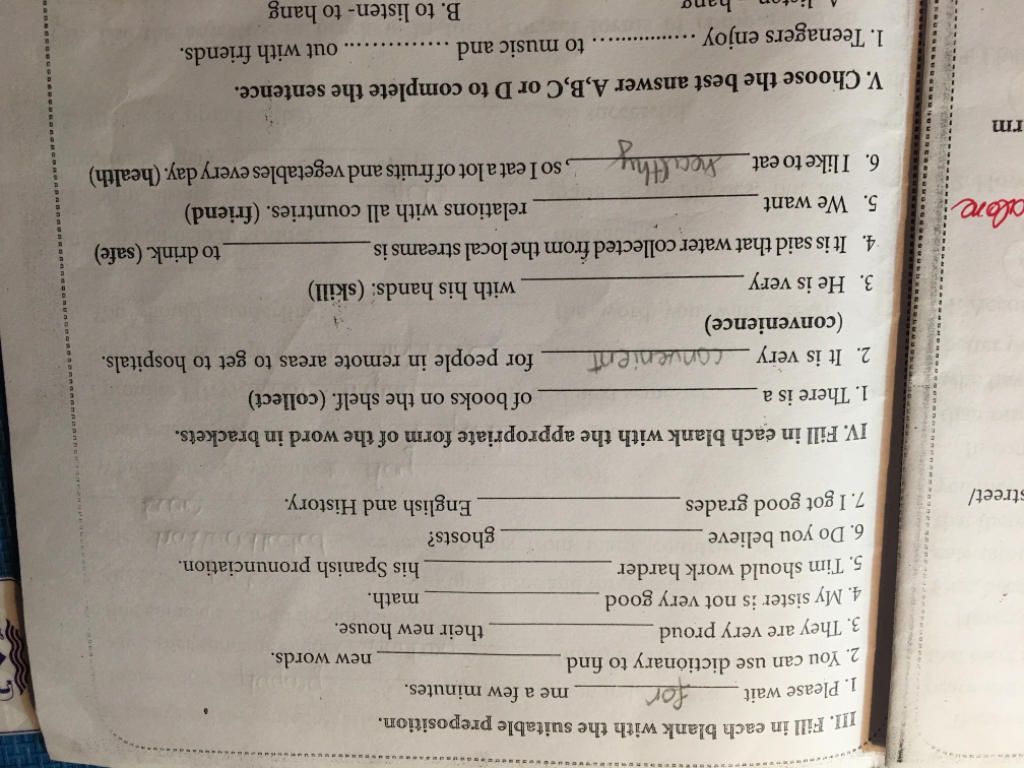 III. Fill in each blank with the suitable preposition.
1. Please wait for me a few minutes.
2. You can use dictionary to find ____ new words.
3. They are very proud ____ their new house.
4. My sister is not very good ____ math.
5. Tim should work harder ____ his Spanish pronunciation.
6. Do you believe ____ ghosts?
7. I got good grades ____ English and History.
IV. Fill in each blank with the appropriate form of the word in brackets.
1. There is a ____ of books on the shelf. (collect)
2. It is very convenient for people in remote areas to get to hospitals.
(convenience)
3. He is very ____ with his hands. (skill)
4. It is said that water collected from the local streams is ____ to drink. (safe)
5. We want ____ relations with all countries. (friend)
6. I like to eat healthy, so I eat a lot of fruits and vegetables every day. (health)
V. Choose the best answer A,B,C or D to complete the sentence.
1. Teenagers enjoy ............... to music and ............... out with friends.
B. to listen- to hang
street/
rm